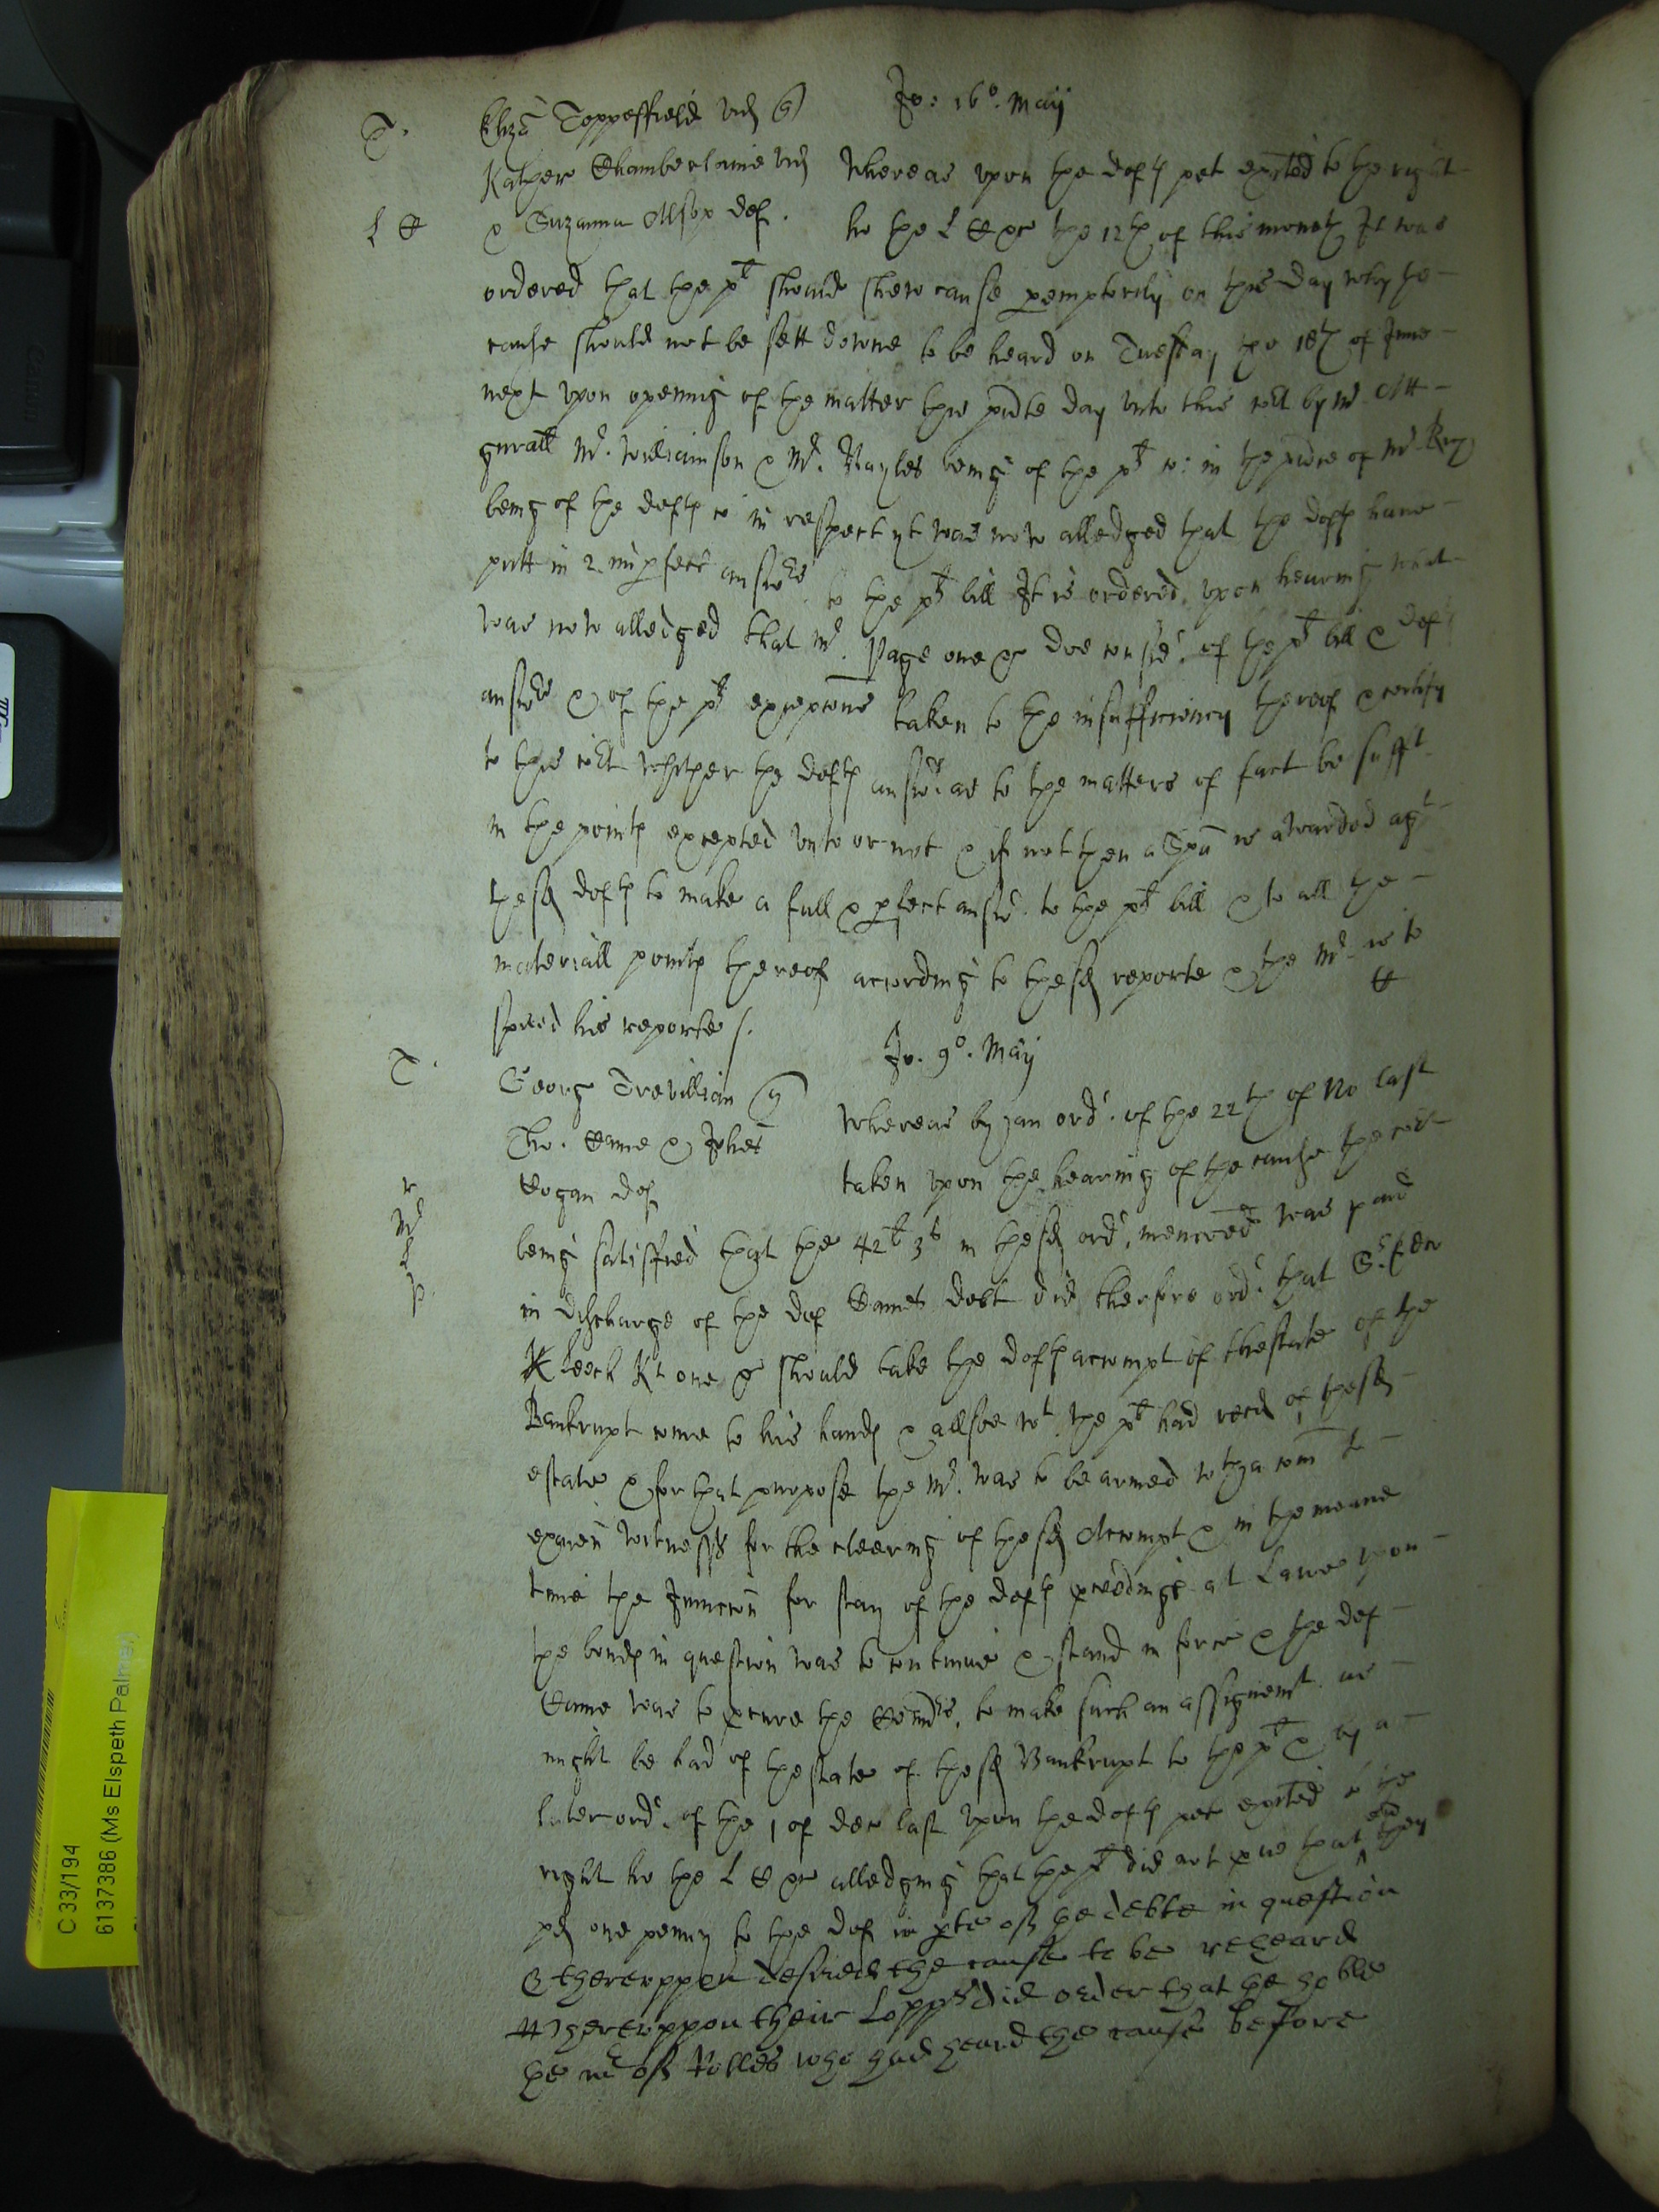 Jo: 16°. Maij
T. Eliza Toppesfield vid q)
Kather Chamberlaine vid Whereas upon the defts pet exited to the right
L C & Suzanna Allsop def. ho the L C &c the 12th of this moneth It was
ordered that the plt should shew cause peremptorily on this day why the
cause should not be sett downe to be heard on Tuesday the 18th of June
next upon opening of the matter this pnte day unto this Cot by Mr Att
gnrall Mr. Williamson & Mr. Vayles being of the plts co: in the pnce of Mr Key
being of the defts co in respect yt was now alledged that the defts have
putt in 2 imperfect answers to the plts bill It is ordered, upon hearing what
was now alledged that Mr. Page one &c doe consider. of the plts bill & defts
answers & of the plts excepcons taken to the insufficiency thereof & certify
to this Cot whether the defts answers as to the matters of fact be sufft
in the points excepted unto or not & if not then a Spa is awarded agt
the sd defts to make a full & perfect answr. to the plts bill & to all the
materiall points thereof according to the sd reporte & the Mr is to
speed his reporte /.
Jo. 9°. Maij
T. Georg Trevillian q)
Tho. Came & Johes Whereas by an ordr. of the 22th of No last
Cogan def taken upon the hearing of the cause the Cot
r
Mr
L
p
being satisfied that the 42l 3s in the sd ordr. mencoed was paid
in discharge of the def Cames debt did therfore ordr. that Sr. Edw
Leech Kt one &c should take the defts accompt of thestate of the
Bankrupt come to his hands & allsoe wt. the plt had recd of the sd
estate & for that purpose the Mr. was to be armed wth a com to
examen witnesses for the cleering of the sd Accompt & in the meane
time the Junccon for stay of the defts pceedings at Lawe upon
the bonds in question was to continue & stand in force & the def
Came was to pcure the Comrs. to make such an assignemt. as
might be had of thestate of the sd Bankrupt to the plt & by a
later ordr. of the 1 of Dec last upon the defts pet exited to the
right ho the L C &c alledging that the plt did not pve that they
pd one penny to the def in pte of the debte in question
& thereuppon desired the cause to be reheard
Whereuppon their Lopps did order that the hoble
the Mr of Rolles who had heard the cause before
C 33/194
6137386 (Ms Elspeth Palmer)
Canon